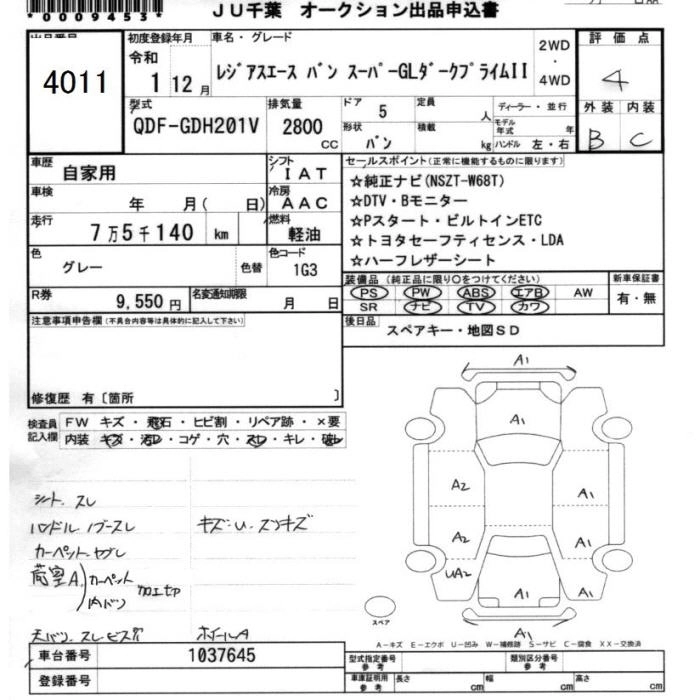 *0009453*
JU千葉 オークション出品申込書
出品番号
4011
初度登録年月
令和
1 12月
車名・グレード
レジアスエース バン スーパーGLダークプライムII
2WD
・
4WD
評価点
4
外装 内装
B C
型式
QDF-GDH201V
排気量
2800
cc
ドア
5
定員
人
ディーラー・並行
形状
バン
積載
kg
モデル年式
年
ハンドル 左・右
車歴
自家用
シフト
IAT
車検
年 月( 日)
冷房
AAC
走行
7万5千140 km
燃料
軽油
色
グレー
色替
色コード
1G3
R券
9,550円
名変通知期限
月 日
セールスポイント(正常に機能するものに限ります)
☆純正ナビ(NSZT-W68T)
☆DTV・Bモニター
☆Pスタート・ビルトインETC
☆トヨタセーフティセンス・LDA
☆ハーフレザーシート
装備品 (純正品に限り○をつけてください)
PS PW ABS エアB AW
SR ナビ TV カワ
新車保証書
有・無
後日品
スペアキー・地図SD
注意事項申告欄(不具合内容等は具体的に記入して下さい)
修復歴 有〔箇所 〕
検査員記入欄
FW キズ・飛石・ヒビ割・リペア跡・×要
内装 キズ・汚レ・コゲ・穴・スレ・キレ・破レ
シート スレ
ハンドル ノブースレ
キズ・U・スンキズ
カーペット
荷室A
カーペット
内バン
加工セア
ホイールA
A1
A1
A2
A1
A2
A1
UA2
A1
A1
A1
スペア
A-キズ E-エクボ U-凹み W-補修跡 S-サビ C-腐食 XX-交換済
車台番号
1037645
登録番号
型式指定番号
参考
類別区分番号
参考
車庫証明用
参考
長さ
cm
幅
cm
高さ
cm